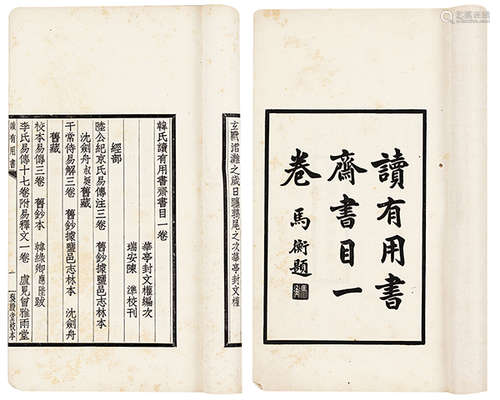 讀有用書
齋書目一
卷 馬衡題
玄黓涒灘之歲日躔鶉尾之次華亭封文權
韓氏讀有用書齋書目一卷
華亭封文權編次
瑞安陳 準校刊
經部
陸公紀京氏易傳注三卷 舊鈔據鹽邑志林本
沈劍舟叔埏舊藏
干常侍易解三卷 舊鈔據鹽邑志林本 沈劍舟
舊藏
校本易傳三卷 舊鈔本 韓綠卿應陛跋
李氏易傳十七卷附易釋文一卷 盧見曾雅雨堂
讀有用書 一